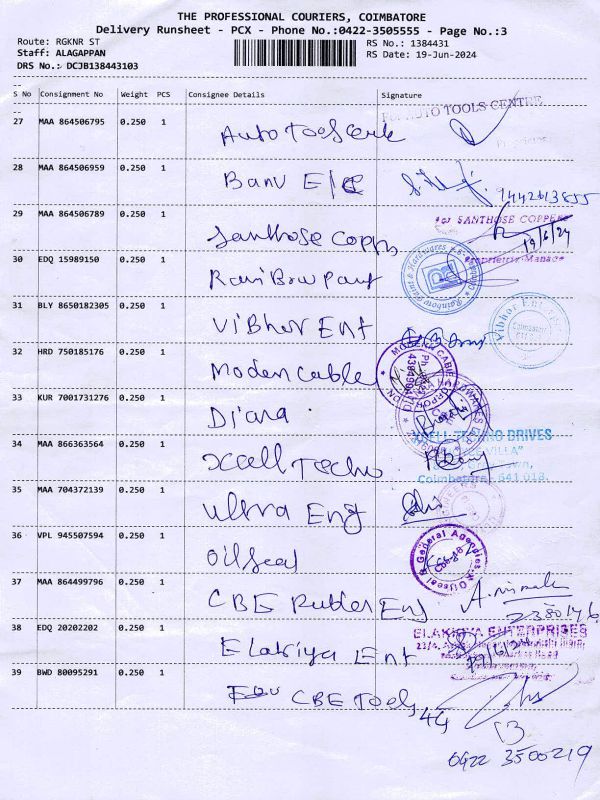 THE PROFESSIONAL COURIERS, COIMBATORE
Delivery Runsheet - PCX - Phone No.:0422-3505555 - Page No.:3
Route: RGKNR ST
RS No.: 1384431
Staff: ALAGAPPAN
RS Date: 19-Jun-2024
DRS No.: DCJB138443103
S No Consignment No Weight PCS Consignee Details Signature
AUTO TOOLS CENTRE
27 MAA 864506795 0.250 1
28 MAA 864506959 0.250 1 Banu E/C
9442613855
29 MAA 864506789 0.250 1 Santhose Copps
For SANTHOSE COPPERS
19/6/24
30 EDQ 15989150 0.250 1 Ravi Bow Paint
31 BLY 8650182305 0.250 1 Vibhor Ent
Vibhor Ent
Coimbatore
32 HRD 750185176 0.250 1 Moden Cable
MODERN CABLE
33 KUR 7001731276 0.250 1 Diana
34 MAA 866363564 0.250 1 Xcell Techno
XCELL TECHNO DRIVES
VILLA"
Coimbatore - 641 018.
35 MAA 704372139 0.250 1 Ultra Eng
36 VPL 945507594 0.250 1 Oilseal
General Agencies
37 MAA 864499796 0.250 1 CBE Rubber Eng
2380146
38 EDQ 20202202 0.250 1 Elakiya Ent
ELAKIYA ENTERPRISES
19/6/24
39 BWD 80095291 0.250 1 CBE Tools
0422 3500219